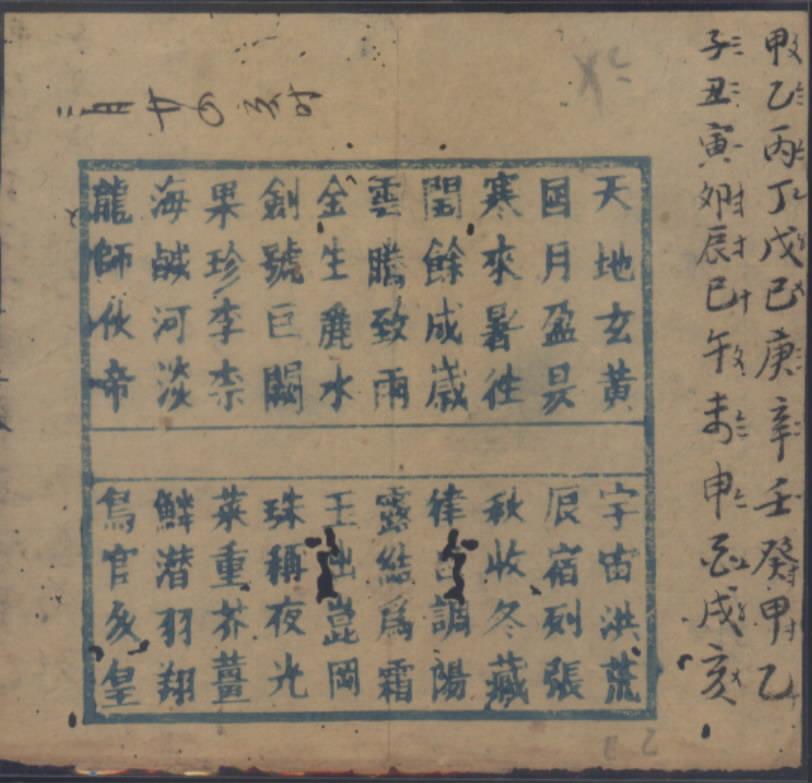 甲乙丙丁戊己庚辛壬癸甲乙
子丑寅卯辰巳午未申酉戌亥
天地玄黃 宇宙洪荒
日月盈昃 辰宿列張
寒來暑徃 秋收冬藏
閏餘成歲 律呂調陽
雲騰致雨 露結爲霜
金生麗水 玉出崑岡
劍號巨闕 珠稱夜光
果珍李柰 菜重芥薑
海鹹河淡 鱗潜羽翔
龍師火帝 鳥官人皇